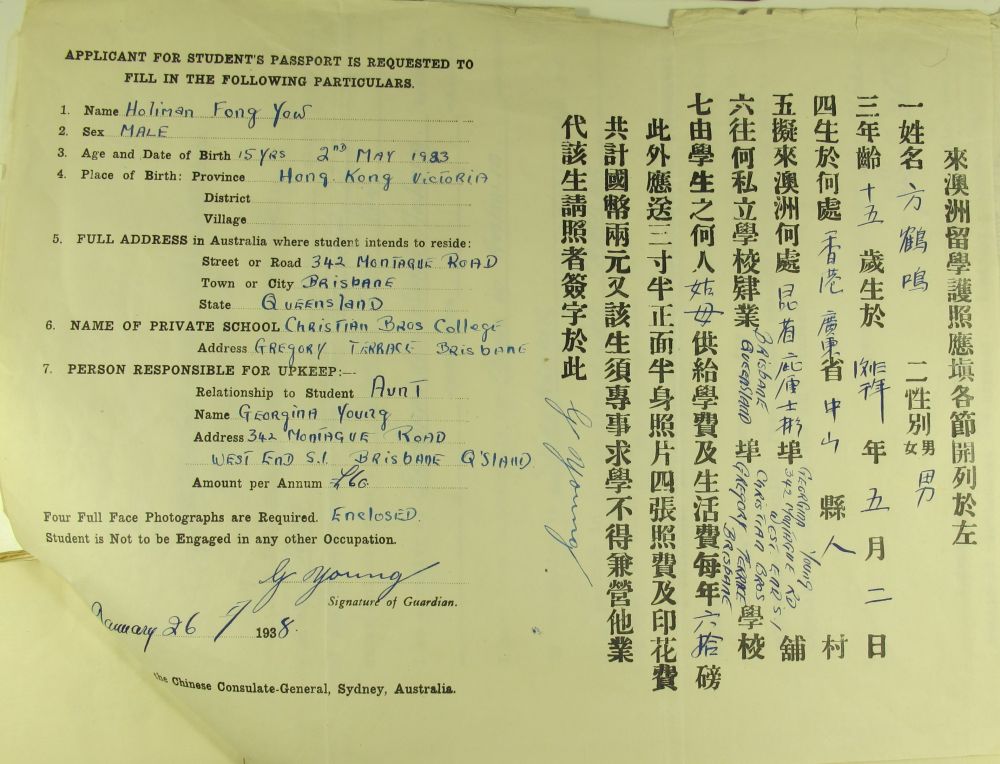 APPLICANT FOR STUDENT'S PASSPORT IS REQUESTED TO
FILL IN THE FOLLOWING PARTICULARS.
1. Name Holiman Fong Yow
2. Sex MALE
3. Age and Date of Birth 15 YRS 2ND MAY 1923
4. Place of Birth: Province Hong Kong Victoria
District
Village
5. FULL ADDRESS in Australia where student intends to reside:
Street or Road 342 Montague Road
Town or City Brisbane
State Queensland
6. NAME OF PRIVATE SCHOOL Christian Bros College
Address Gregory Terrace Brisbane
7. PERSON RESPONSIBLE FOR UPKEEP:—
Relationship to Student Aunt
Name Georgina Young
Address 342 Montague Road
West End S.1. Brisbane Q'sland
Amount per Annum £60
Four Full Face Photographs are Required. Enclosed.
Student is Not to be Engaged in any other Occupation.
G Young
Signature of Guardian.
January 26 / 7 1938.
the Chinese Consulate-General, Sydney, Australia.
來澳洲留學護照應填各節開列於左
一姓名 方鶴鳴 二性別 男女 男
三年齡 十五 歲生於 年 五 月 二 日
四生於何處 香港 廣東 省 中山 縣 人 村
五擬來澳洲何處 埠 Georgina Young 342 Montague Rd West End S1 舖
六往何私立學校肄業 Brisbane Queensland 埠 Christian Bros Gregory Terrace Brisbane 學校
七由學生之何人 姑母 供給學費及生活費每年 六拾 磅
此外應送三寸半正面半身照片四張照費及印花費
共計國幣兩元又該生須專事求學不得兼營他業
代該生請照者簽字於此 G Young